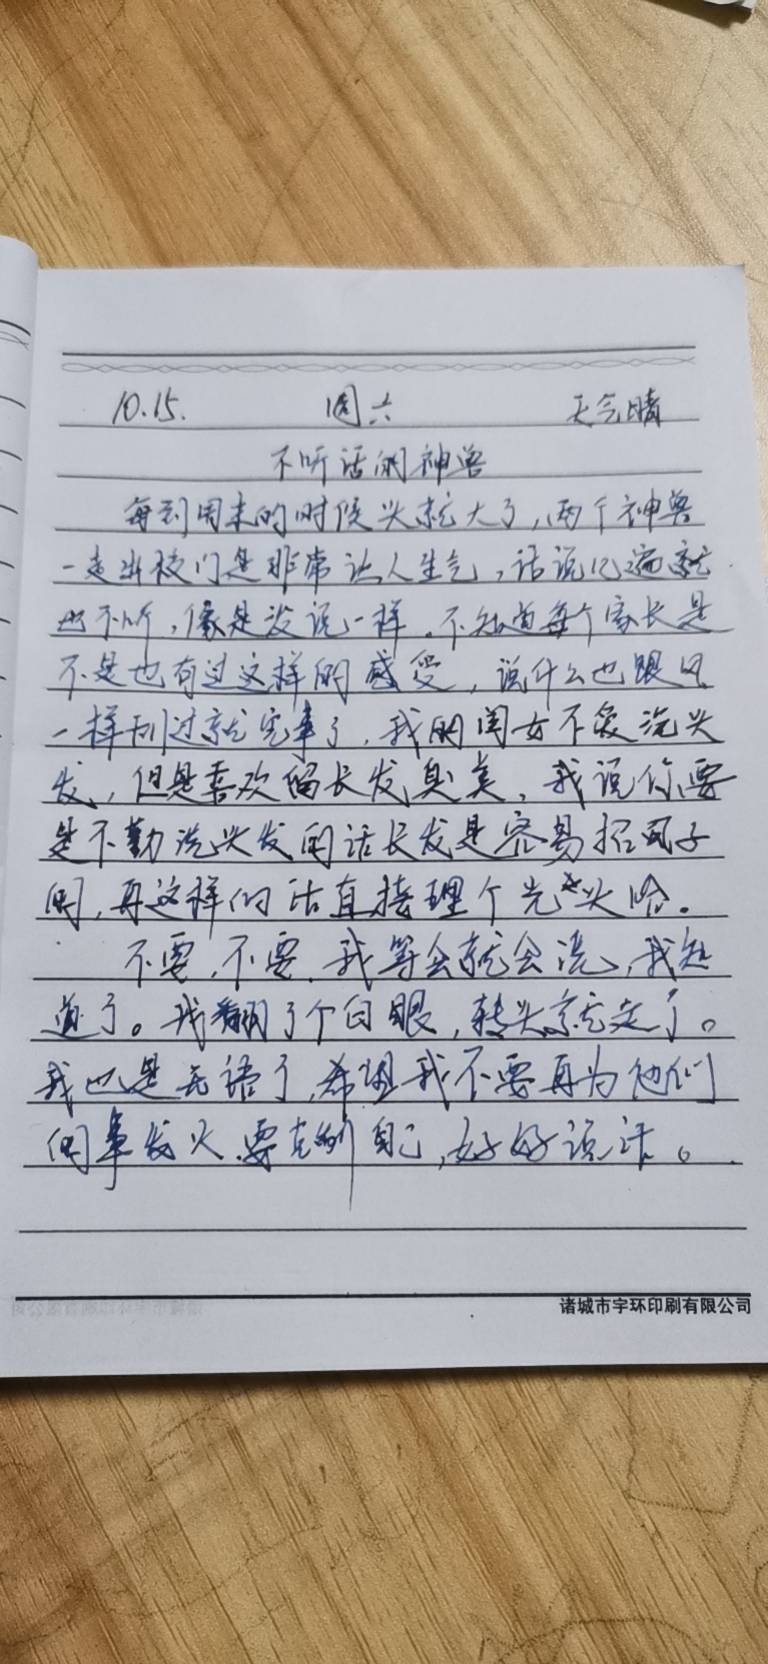 10.15. 周六 天气晴
不听话的神兽
每到周末的时候头就大了,两个神兽
一走出校门是非常让人生气,话说几遍就
是不听,像是没说一样。不知道每个家长是
不是也有过这样的感受,说什么也跟风
一样刮过就完事了,我的闺女不爱洗头
发,但是喜欢留长发臭美,我说你要
是不勤洗头发的话长发是容易招虱子
的,再这样的话直接理个光头哈。
不要,不要,我等会就会洗,我知
道了。我翻了个白眼,转头就走了。
我也是无语了,希望我不要再为他们
的事发火,要克制自己,好好说话。
诸城市宇环印刷有限公司